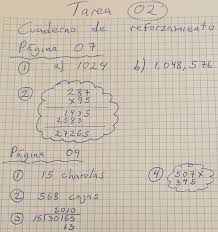 Tarea 02
Cuaderno de reforzamiento
Página 07
① a) 1024 b) 1,048,576
② 287
x 95
1435
2583
27265
Página 09
① 15 charolas
② 568 cajas
③ 2010
15√30165
15
④ 507 x
345